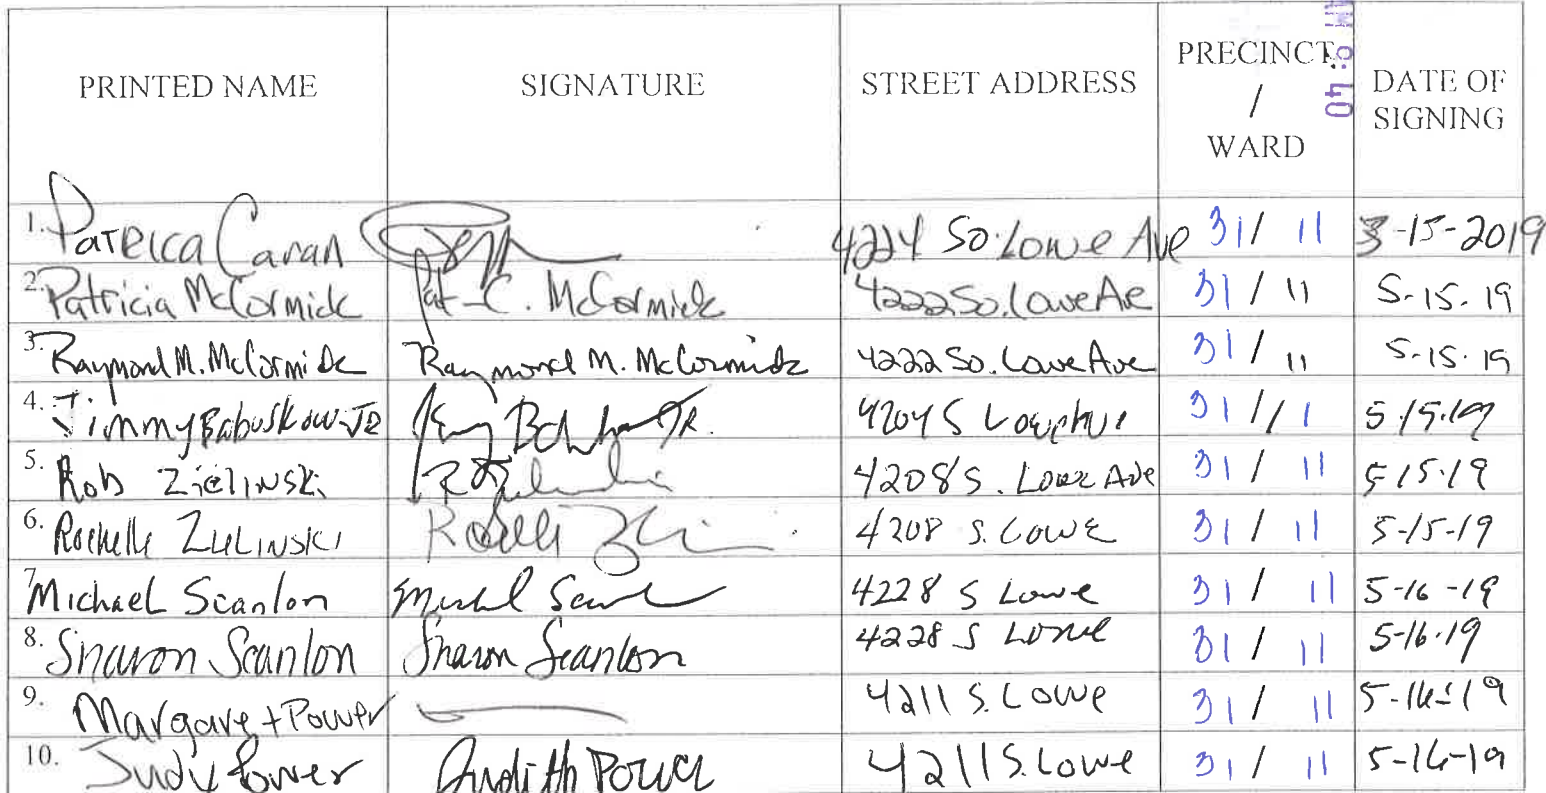 PRINTED NAME SIGNATURE STREET ADDRESS PRECINCT / WARD DATE OF SIGNING
AM 8:40
1. Patricia Caran 4224 So. Lowe Ave 31 / 11 5-15-2019
2. Patricia McCormick Pat C. McCormick 4222 So. Lowe Ave 31 / 11 5-15-19
3. Raymond M. McCormick Raymond M. McCormick 4222 So. Lowe Ave 31 / 11 5-15-19
4. Jimmy Babuskow JR JR. 4204 S Lowe Ave 31 / 11 5-15-19
5. Rob Zielinski 4208 S. Lowe Ave 31 / 11 5-15-19
6. Rochelle Zielinski 4208 S. Lowe 31 / 11 5-15-19
7. Michael Scanlon 4228 S Lowe 31 / 11 5-16-19
8. Sharon Scanlon Sharon Scanlon 4228 S Lowe 31 / 11 5-16-19
9. Margaret Power 4211 S. Lowe 31 / 11 5-16-19
10. Judy Power Judith Power 4211 S. Lowe 31 / 11 5-16-19